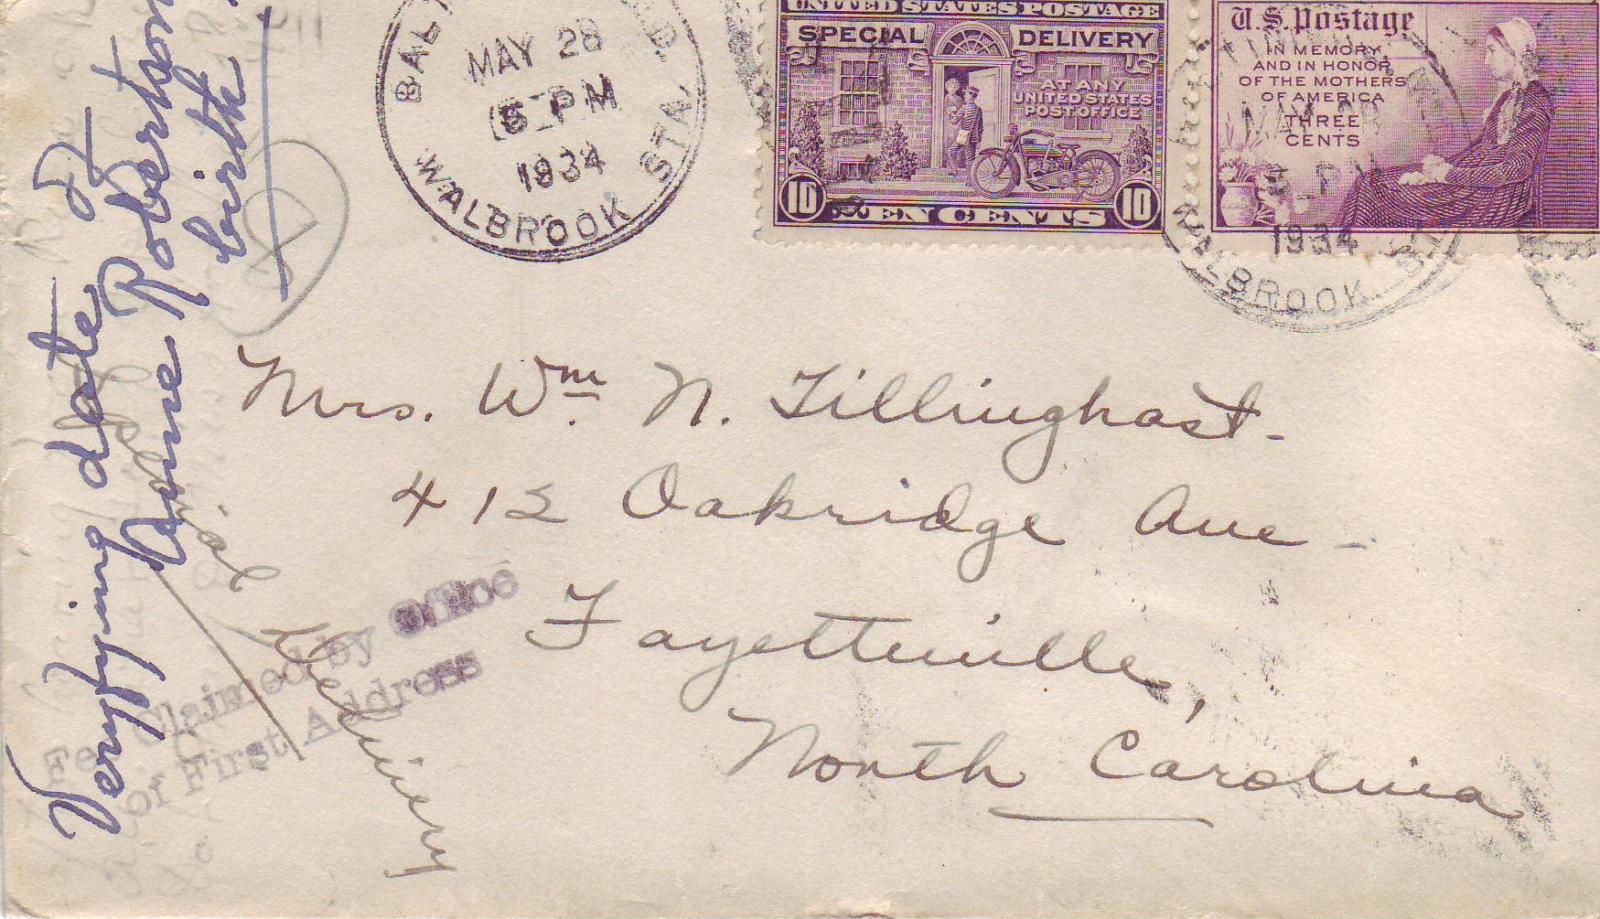 MAY 28
PM
1934
WALBROOK STA.
UNITED STATES POSTAGE
SPECIAL DELIVERY
AT ANY
UNITED STATES
POST OFFICE
10 TEN CENTS 10
U.S. Postage
IN MEMORY
AND IN HONOR
OF THE MOTHERS
OF AMERICA
THREE
CENTS
1934
WALBROOK
Mrs. Wm N. Tillinghast-
412 Oakridge Ave-
Fayetteville,
North Carolina
Special Delivery
Fee Claimed by Office
of First Address
Veryfying date
Anne Robertson
birth